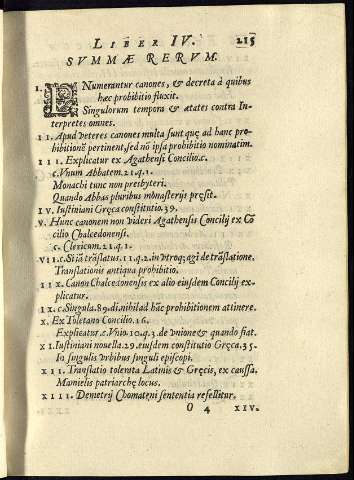 LIBER IV. 215
SVMMÆ RERVM.
I. ENumerantur canones, & decreta à quibus
hæc prohibitio fluxit.
Singulorum tempora & ætates contra In-
terpretes omnes.
II. Apud veteres canones multa sunt quę ad hanc pro-
hibitionē pertinent, sed nō ipsa prohibitio nominatim.
III. Explicatur ex Agathensi Concilio.c.
c. Vnum Abbatem. 21.q.1.
Monachi tunc non presbyteri.
Quando Abbas pluribus monasterijs pręsit.
IV. Iustiniani Gręca constitutio. 39.
V. Hunc canonem non videri Agathensis Concilij ex Cō
cilio Chalcedonensi.
c. Clericum. 21.q.1.
VII. c. Si iā trāslatus. 11.q.2. in vtroq; agi de trāslatione.
Translationis antiqua prohibitio.
IIX. Canon Chalcedonensis ex alio eiusdem Concilij ex-
plicatur.
IX. c. Singula. 89. di. nihil ad hāc prohibitionem attinere.
X. Ex Toletano Concilio. 16.
Explicatur. c. Vnio. 10.q.3. de vnione & quando fiat.
XI. Iustiniani nouella. 29. eiusdem constitutio Gręca. 35.
In singulis vrbibus singuli episcopi.
XII. Translatio tolerata Latinis & Gręcis, ex caussa.
Mamielis patriarchę locus.
XIII. Demetrij Chomateni sententia refellitur.
O 4 XIV.